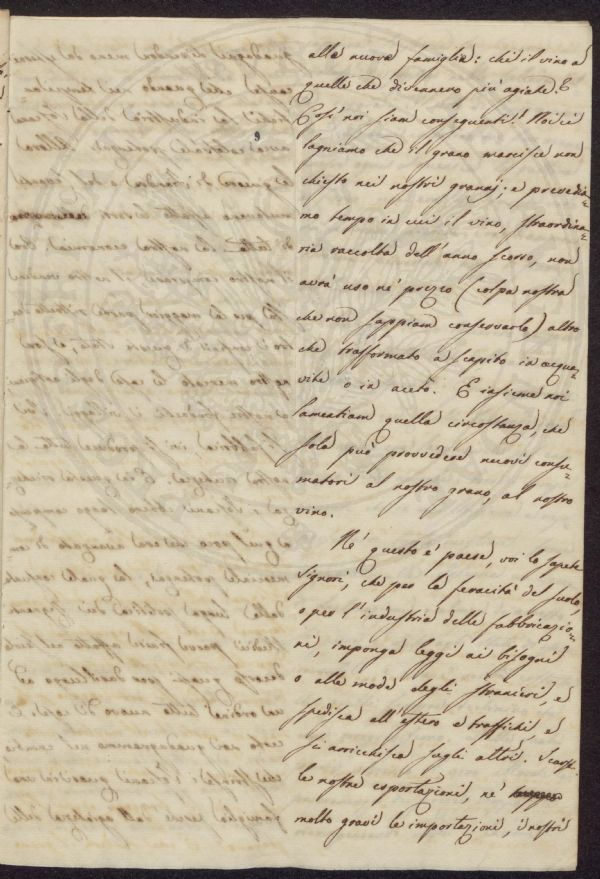 alla nuova famiglia: chè il vino a
quelle che divennero più agiate. E
Così noi siam conseguenti! Noi ci
lagniamo che il grano marcisce non
chiesto nei nostri granaj; e prevedia-
mo tempo in cui il vino, straordina-
ria raccolta dell'anno scorso, non
avrà uso nè prezzo (colpa nostra
che non sappiam conservarlo) altro
che trasformato a scapito in acqua-
vite o in aceto. E insieme noi
lamentiam quella circostanza, che
sola può provvedere nuovi consu-
matori al nostro grano, al nostro
vino.
Nè questo è paese, voi lo sapete
Signori, che per la feracità del suolo,
o per l'industria delle fabbricazio-
ni, imponga leggi ai bisogni
o alle mode degli stranieri, e
spedisca all'estero e traffichi, e
si arricchisca sugli altri. Scarse
le nostre esportazioni, nè
molto gravi le importazioni, i nostri